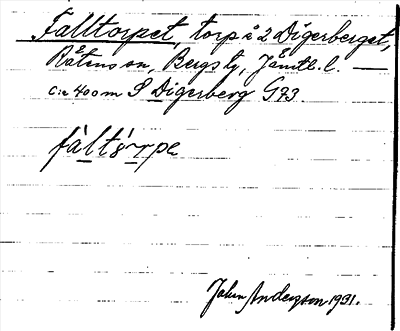 Fälltorpet, torp å 2 Digerberget,
Råtens sn, Bergs tg, Jämtl. l. —
c:a 400 m S Digerberg G73.
fàltórpe
John Anderzon 1931.